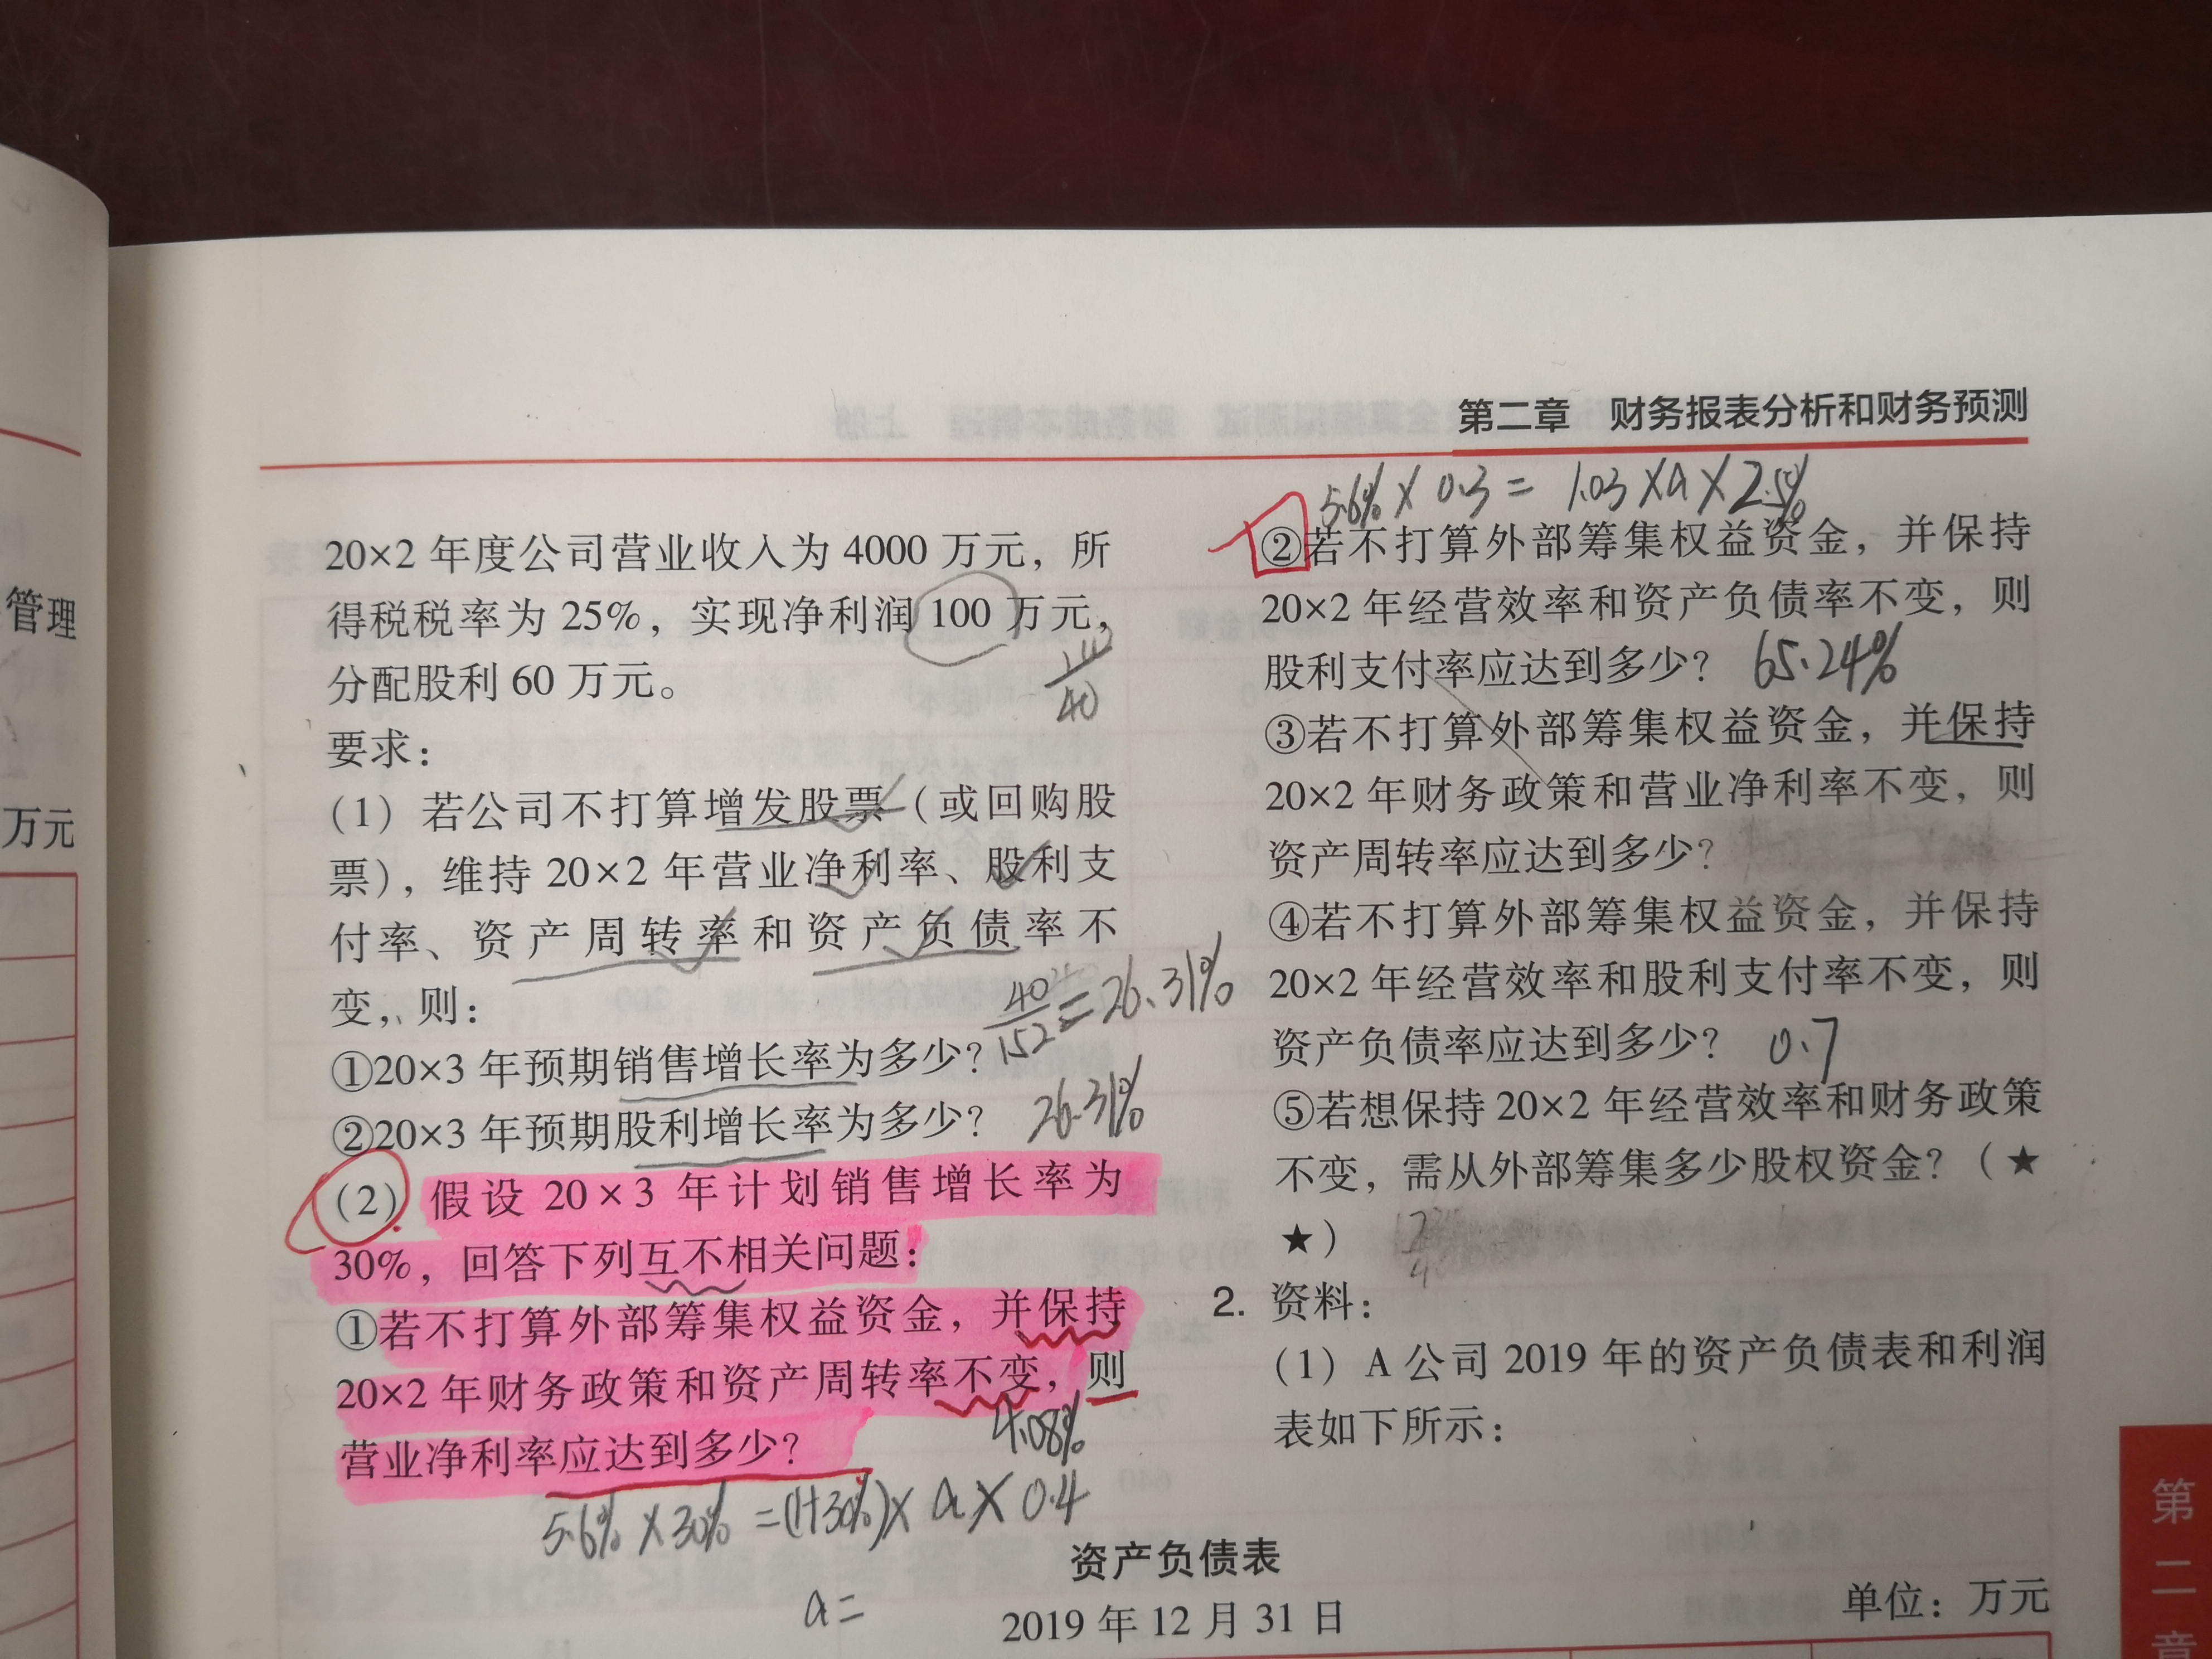 管理
万元
第二章 财务报表分析和财务预测
20×2 年度公司营业收入为 4000 万元，所
得税税率为 25%，实现净利润 100 万元，
分配股利 60 万元。
40
要求：
（1）若公司不打算增发股票（或回购股
票），维持 20×2 年营业净利率、股利支
付率、资产周转率和资产负债率不
变，则：
40/152=26.31%
①20×3 年预期销售增长率为多少？
②20×3 年预期股利增长率为多少？ 26.31%
（2）假设 20×3 年计划销售增长率为
30%，回答下列互不相关问题：
①若不打算外部筹集权益资金，并保持
20×2 年财务政策和资产周转率不变，则
营业净利率应达到多少？ 4.08%
5.6%×30%=(1+30%)×a×0.4
a=
5.6%×0.3=1.03×a×2.5%
②若不打算外部筹集权益资金，并保持
20×2 年经营效率和资产负债率不变，则
股利支付率应达到多少？ 65.24%
③若不打算外部筹集权益资金，并保持
20×2 年财务政策和营业净利率不变，则
资产周转率应达到多少？
④若不打算外部筹集权益资金，并保持
20×2 年经营效率和股利支付率不变，则
资产负债率应达到多少？ 0.7
⑤若想保持 20×2 年经营效率和财务政策
不变，需从外部筹集多少股权资金？（★
★）
2. 资料：
（1）A 公司 2019 年的资产负债表和利润
表如下所示：
资产负债表
2019 年 12 月 31 日
单位：万元
第
二
章